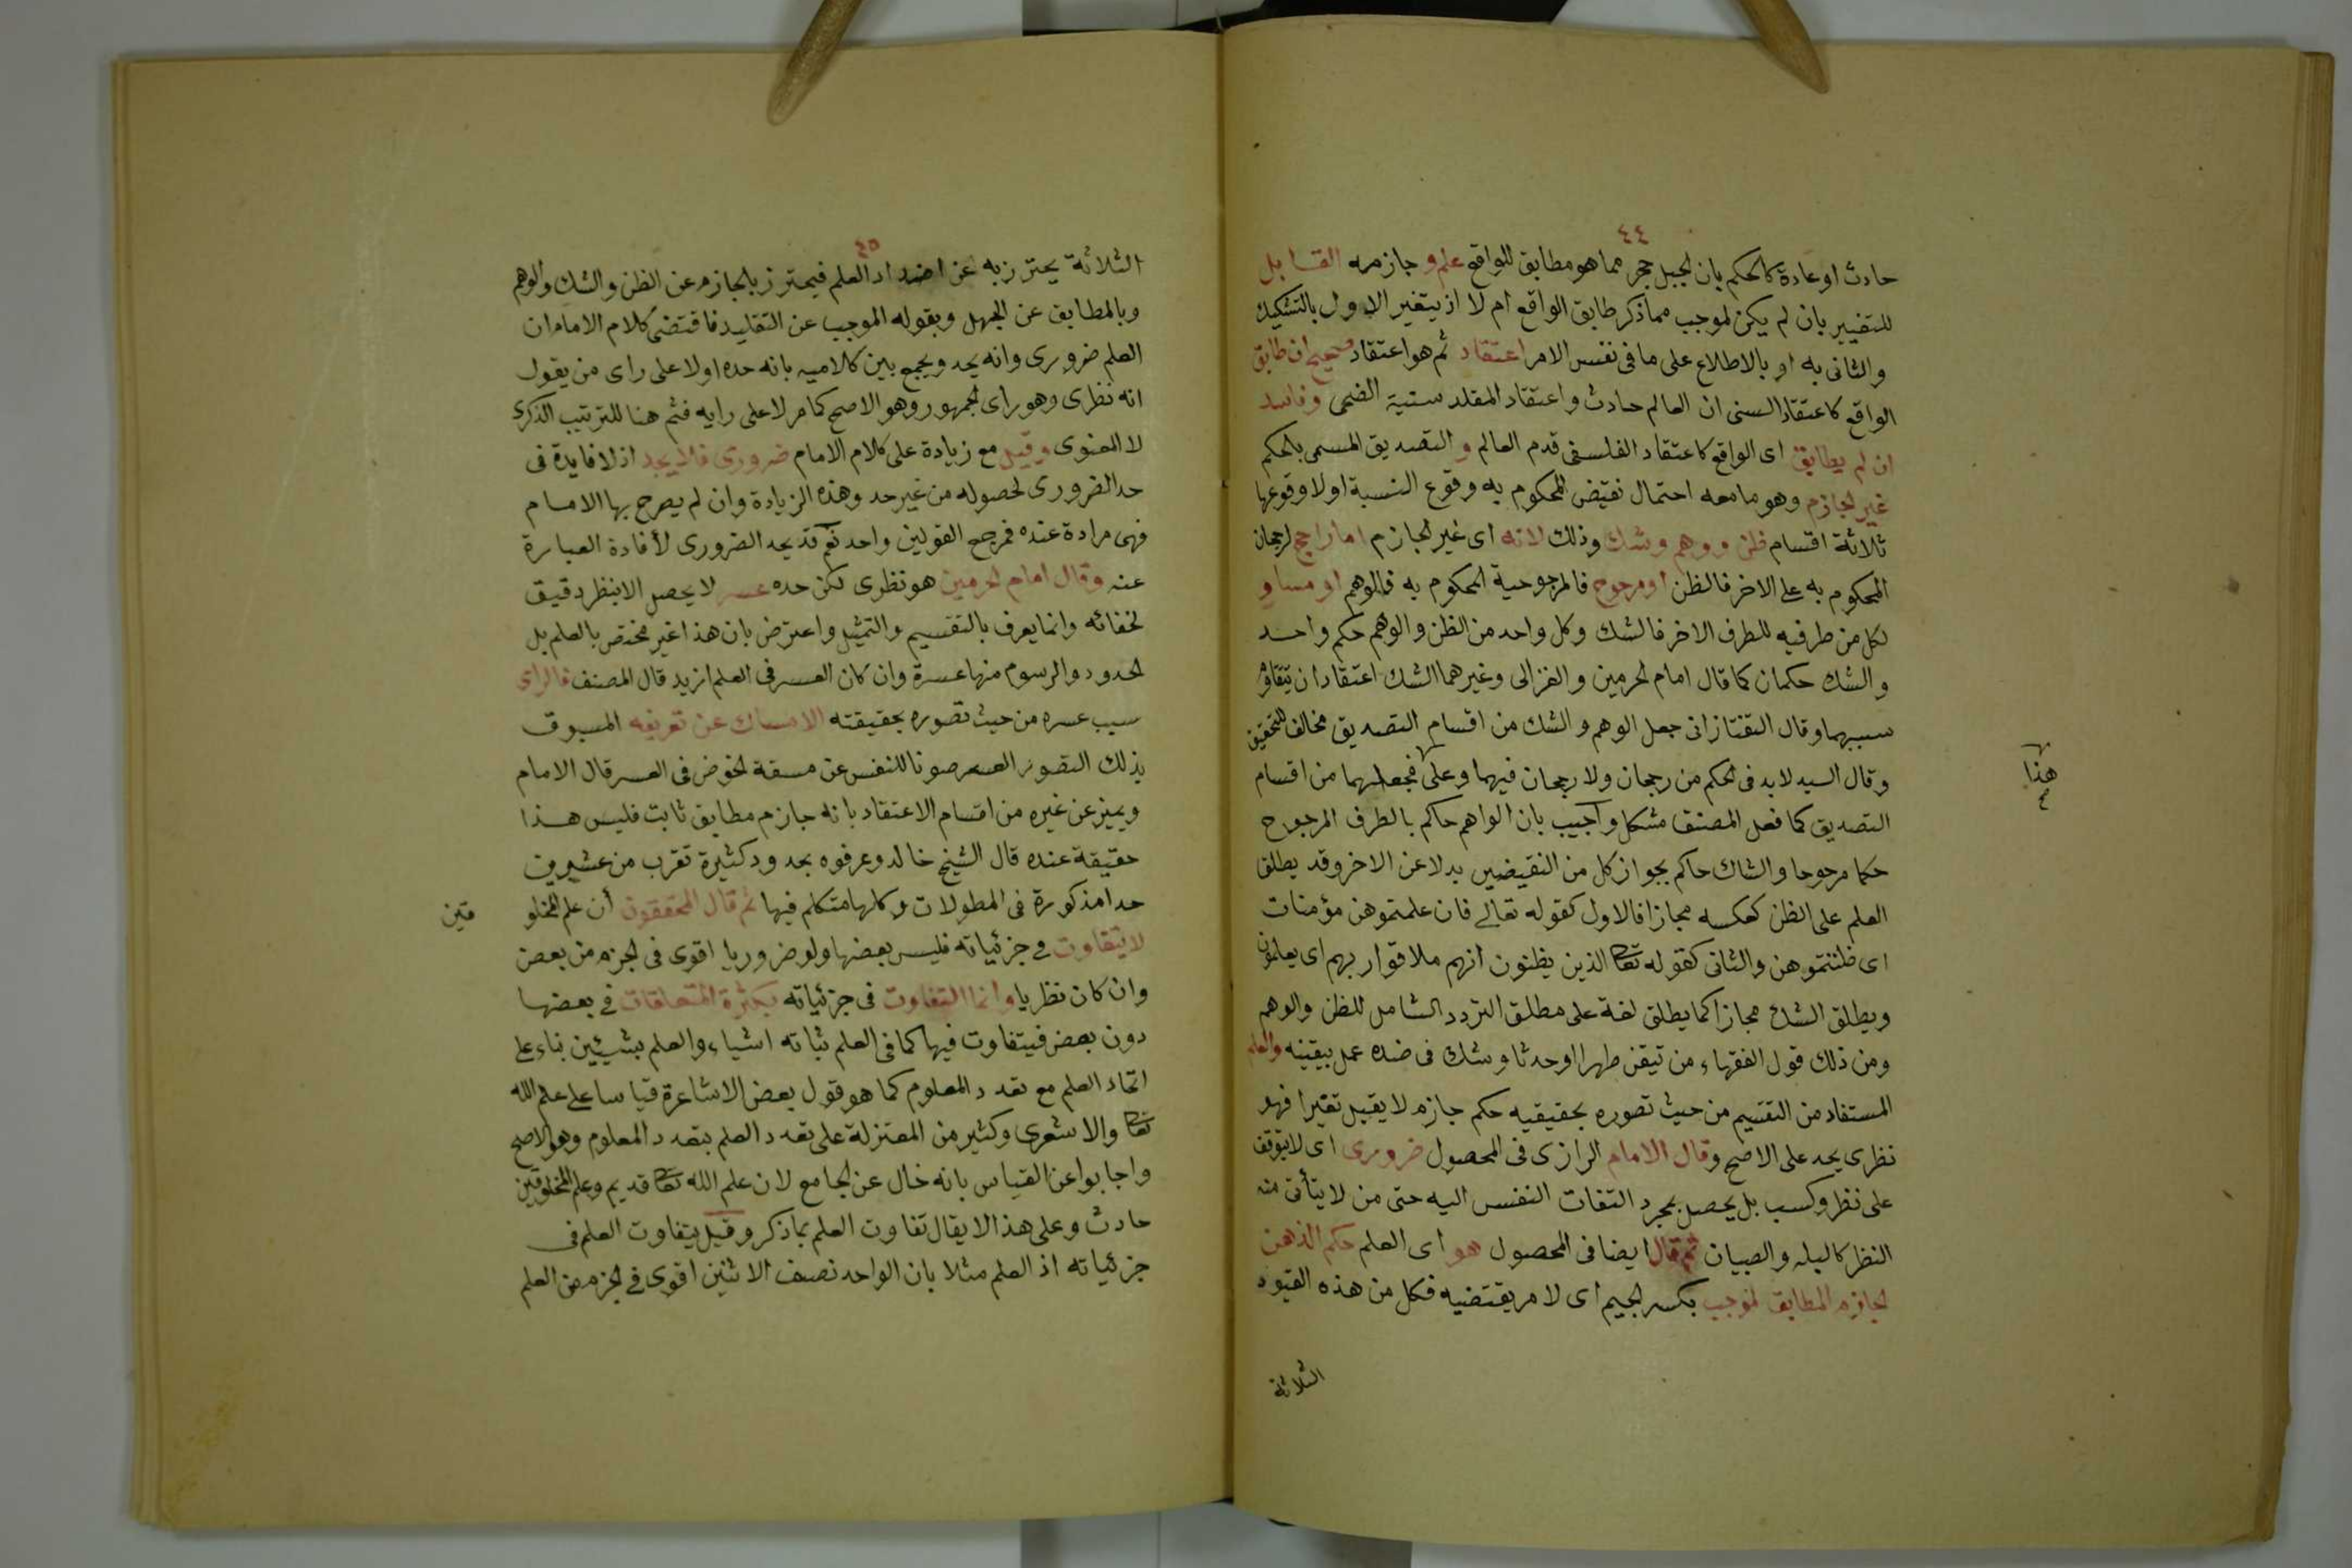 ٤٤
حادث او عادة كالحكم بان الجبل حجر مما هو مطابق للواقع علم و جازمه القابل
للتغيير بان لم يكن لموجب مما ذكر طابق الواقع ام لا اذ يتغير الاول بالتشكيك
والثانى به او بالاطلاع على ما فى نفس الامر اعتقاد ثم هو اعتقاد صحيح ان طابق
الواقع كاعتقاد السنى ان العالم حادث واعتقاد المقلد سنية الضحى وفاسد
ان لم يطابق اى الواقع كاعتقاد الفلسفى قدم العالم و التصديق المسمى بالحكم
غير الجازم وهو ما معه احتمال نقيض المحكوم به وقوع النسبة اولا وقوعها
ثلاثة اقسام ظن ووهم وشك وذلك لانه اى غير الجازم اما راجح لرجحان
المحكوم به على الاخر فالظن او مرجوح فالمرجوحية المحكوم به فالوهم او مساو
لكل من طرفيه للطرف الاخر فالشك وكل واحد من الظن والوهم حكم واحد
والشك حكمان كما قال امام الحرمين والغزالى وغيرهما الشك اعتقاد ان يتقاوم
سببهما وقال التفتازانى جعل الوهم والشك من اقسام التصديق مخالف للتحقيق
وقال السيد لابد فى الحكم من رجحان ولا رجحان فيهما وعلى فجعلهما من اقسام
هذا
التصديق كما فعل المصنف مشكل واجيب بان الواهم حاكم بالطرف المرجوح
حكما مرجوحا والشاك حاكم بجواز كل من النقيضين بدلا عن الاخر وقد يطلق
العلم على الظن كعكسه مجازا فالاول كقوله تعالى فان علمتموهن مؤمنات
اى ظننتموهن والثانى كقوله تعا الذين يظنون انهم ملاقوا ربهم اى يعلمون
ويطلق الشك مجازا كما يطلق لغة على مطلق التردد الشامل للظن والوهم
ومن ذلك قول الفقهاء من تيقن طهرا او حدثا وشك فى ضده عمل بيقينه والعلم
المستفاد من التقسيم من حيث تصوره بحقيقيه حكم جازم لا يقبل تغيرا فهو
نظرى يحد على الاصح وقال الامام الرازى فى المحصول ضرورى اى لا يتوقف
على نظر وكسب بل يحصل بمجرد التفات النفس اليه حتى من لا يتأتى منه
النظر كالبله والصبيان ثم قال ايضا فى المحصول هو اى العلم حكم الذهن
الجازم المطابق لموجب بكسر الجيم اى لامر يقتضيه فكل من هذه القيود
الثلاثة
٤٥
الثلاثة يحترز به عن اضداد العلم فيحترز بالجازم عن الظن والشك والوهم
وبالمطابق عن الجهل وبقوله الموجب عن التقليد فاقتضى كلام الامام ان
العلم ضرورى وانه يحد ويجمع بين كلاميه بانه حده اولا على راى من يقول
انه نظرى وهو راى الجمهور وهو الاصح كما مر لا على رايه فثم هنا للترتيب الذكرى
لا المعنوى وقيل مع زيادة على كلام الامام ضرورى فلا يحد اذ لا فايدة فى
حد الضرورى لحصوله من غير حد وهذه الزيادة وان لم يصرح بها الامام
فهى مرادة عنده فمرجع القولين واحد نعم قد يحد الضرورى لأفادة العبارة
عنه وقال امام الحرمين هو نظرى لكن حده عسر لا يحصل الا بنظر دقيق
لخفائه وانما يعرف بالتقسيم والتمثيل واعترض بان هذا غير مختص بالعلم بل
الحدود والرسوم منها عسرة وان كان العسر فى العلم ازيد قال المصنف فالراى
سبب عسره من حيث تصوره بحقيقته الامساك عن تعريفه المسبوق
بذلك التصور العسر صونا للنفس عن مسقة الخوض فى العسر قال الامام
ويميز عن غيره من اقسام الاعتقاد بانه جازم مطابق ثابت فليس هذا
حقيقة عنده قال الشيخ خالد وعرفوه بحدود كثيرة تقرب من عشرين
حدا مذكورة فى المطولات وكلها متكلم فيها ثم قال المحققون أن علم المخلو
قين
لا يتفاوت فى جزئياته فليس بعضها ولو ضروريا اقوى فى الجزم من بعض
وان كان نظريا وانما التفاوت فى جزئياته بكثرة المتعلقات فى بعضها
دون بعض فيتفاوت فيها كما فى العلم بثلثة اشياء والعلم بشيئين بناء على
اتحاد العلم مع تعدد المعلوم كما هو قول بعض الاشاعرة قياسا على علم الله
تعا والاشعرى وكثير من المعتزلة على تعدد العلم بتعدد المعلوم وهو الاصح
واجابوا عن القياس بانه خال عن الجامع لان علم الله تعا قديم وعلم المخلوقين
حادث وعلى هذا لا يقال تفاوت العلم بما ذكر وقيل يتفاوت العلم فى
جزئياته اذ العلم مثلا بان الواحد نصف الاثنين اقوى فى الجزم من العلم